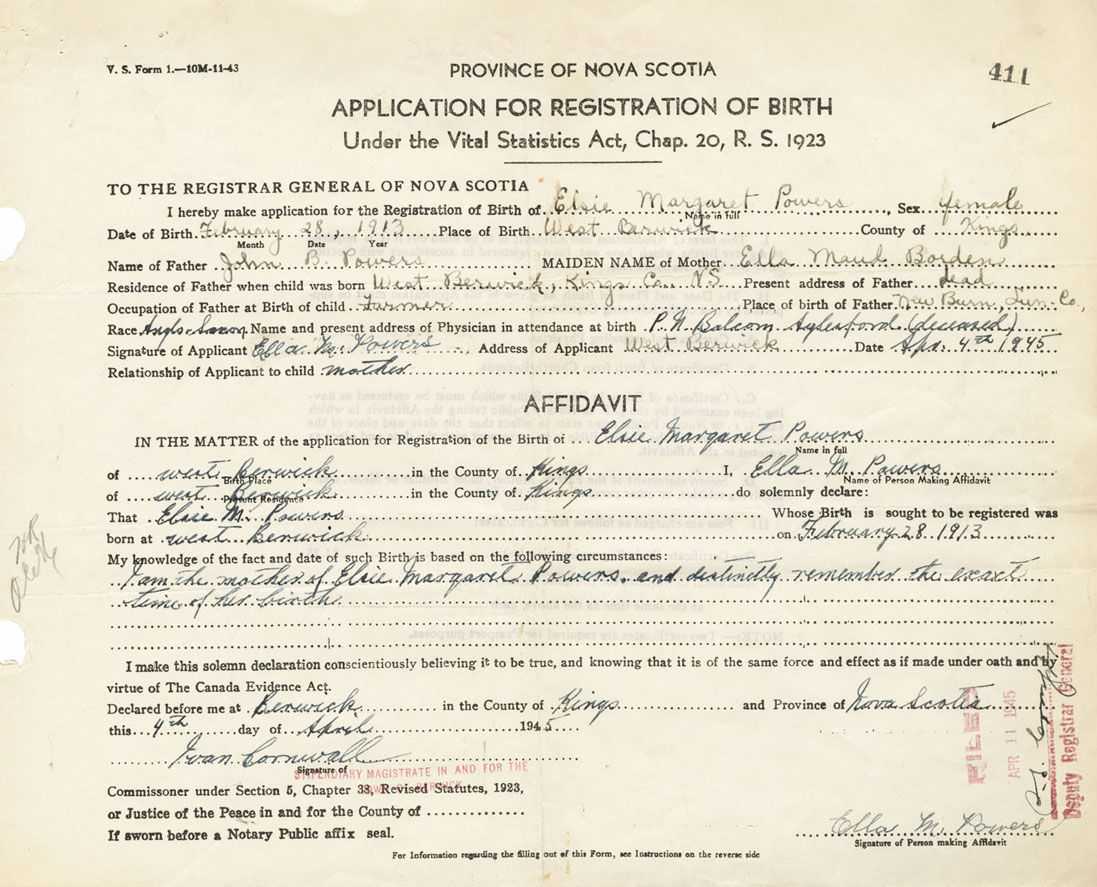 V. S. Form 1.—10M-11-43
PROVINCE OF NOVA SCOTIA
411
APPLICATION FOR REGISTRATION OF BIRTH
Under the Vital Statistics Act, Chap. 20, R. S. 1923
TO THE REGISTRAR GENERAL OF NOVA SCOTIA
I hereby make application for the Registration of Birth of Elsie Margaret Powers, Sex female
Name in full
Date of Birth February 28, 1913 Place of Birth West Berwick County of Kings
Month Date Year
Name of Father John B. Powers MAIDEN NAME of Mother Ella Maud Borden
Residence of Father when child was born West Berwick, Kings Co. NS Present address of Father dead
Occupation of Father at Birth of child Farmer Place of birth of Father New Burn, Lun. Co.
Race Anglo-Saxon Name and present address of Physician in attendance at birth P. N. Balcom Aylesford (deceased)
Signature of Applicant Ella M. Powers Address of Applicant West Berwick Date Apr. 4th 1945
Relationship of Applicant to child mother
AFFIDAVIT
IN THE MATTER of the application for Registration of the Birth of Elsie Margaret Powers
Name in full
of west Berwick in the County of Kings I, Ella M. Powers
Birth Place Name of Person Making Affidavit
of west Berwick in the County of Kings do solemnly declare:
Present Residence
That Elsie M. Powers Whose Birth is sought to be registered was
born at west Berwick on February 28 1913
My knowledge of the fact and date of such Birth is based on the following circumstances:
I am the mother of Elsie Margaret Powers. and distinctly remember the exact
time of her birth
I make this solemn declaration conscientiously believing it to be true, and knowing that it is of the same force and effect as if made under oath and by
virtue of The Canada Evidence Act.
Declared before me at Berwick in the County of Kings and Province of Nova Scotia
this 4th day of April 1945
Ivan Cornwall
Signature of
STIPENDIARY MAGISTRATE IN AND FOR THE
TOWN OF BERWICK
Commissioner under Section 5, Chapter 38, Revised Statutes, 1923,
or Justice of the Peace in and for the County of
If sworn before a Notary Public affix seal.
FILED
APR 11 1945
Deputy Registrar General
Ella M. Powers
Signature of Person making Affidavit
For Information regarding the filling out of this Form, see Instructions on the reverse side